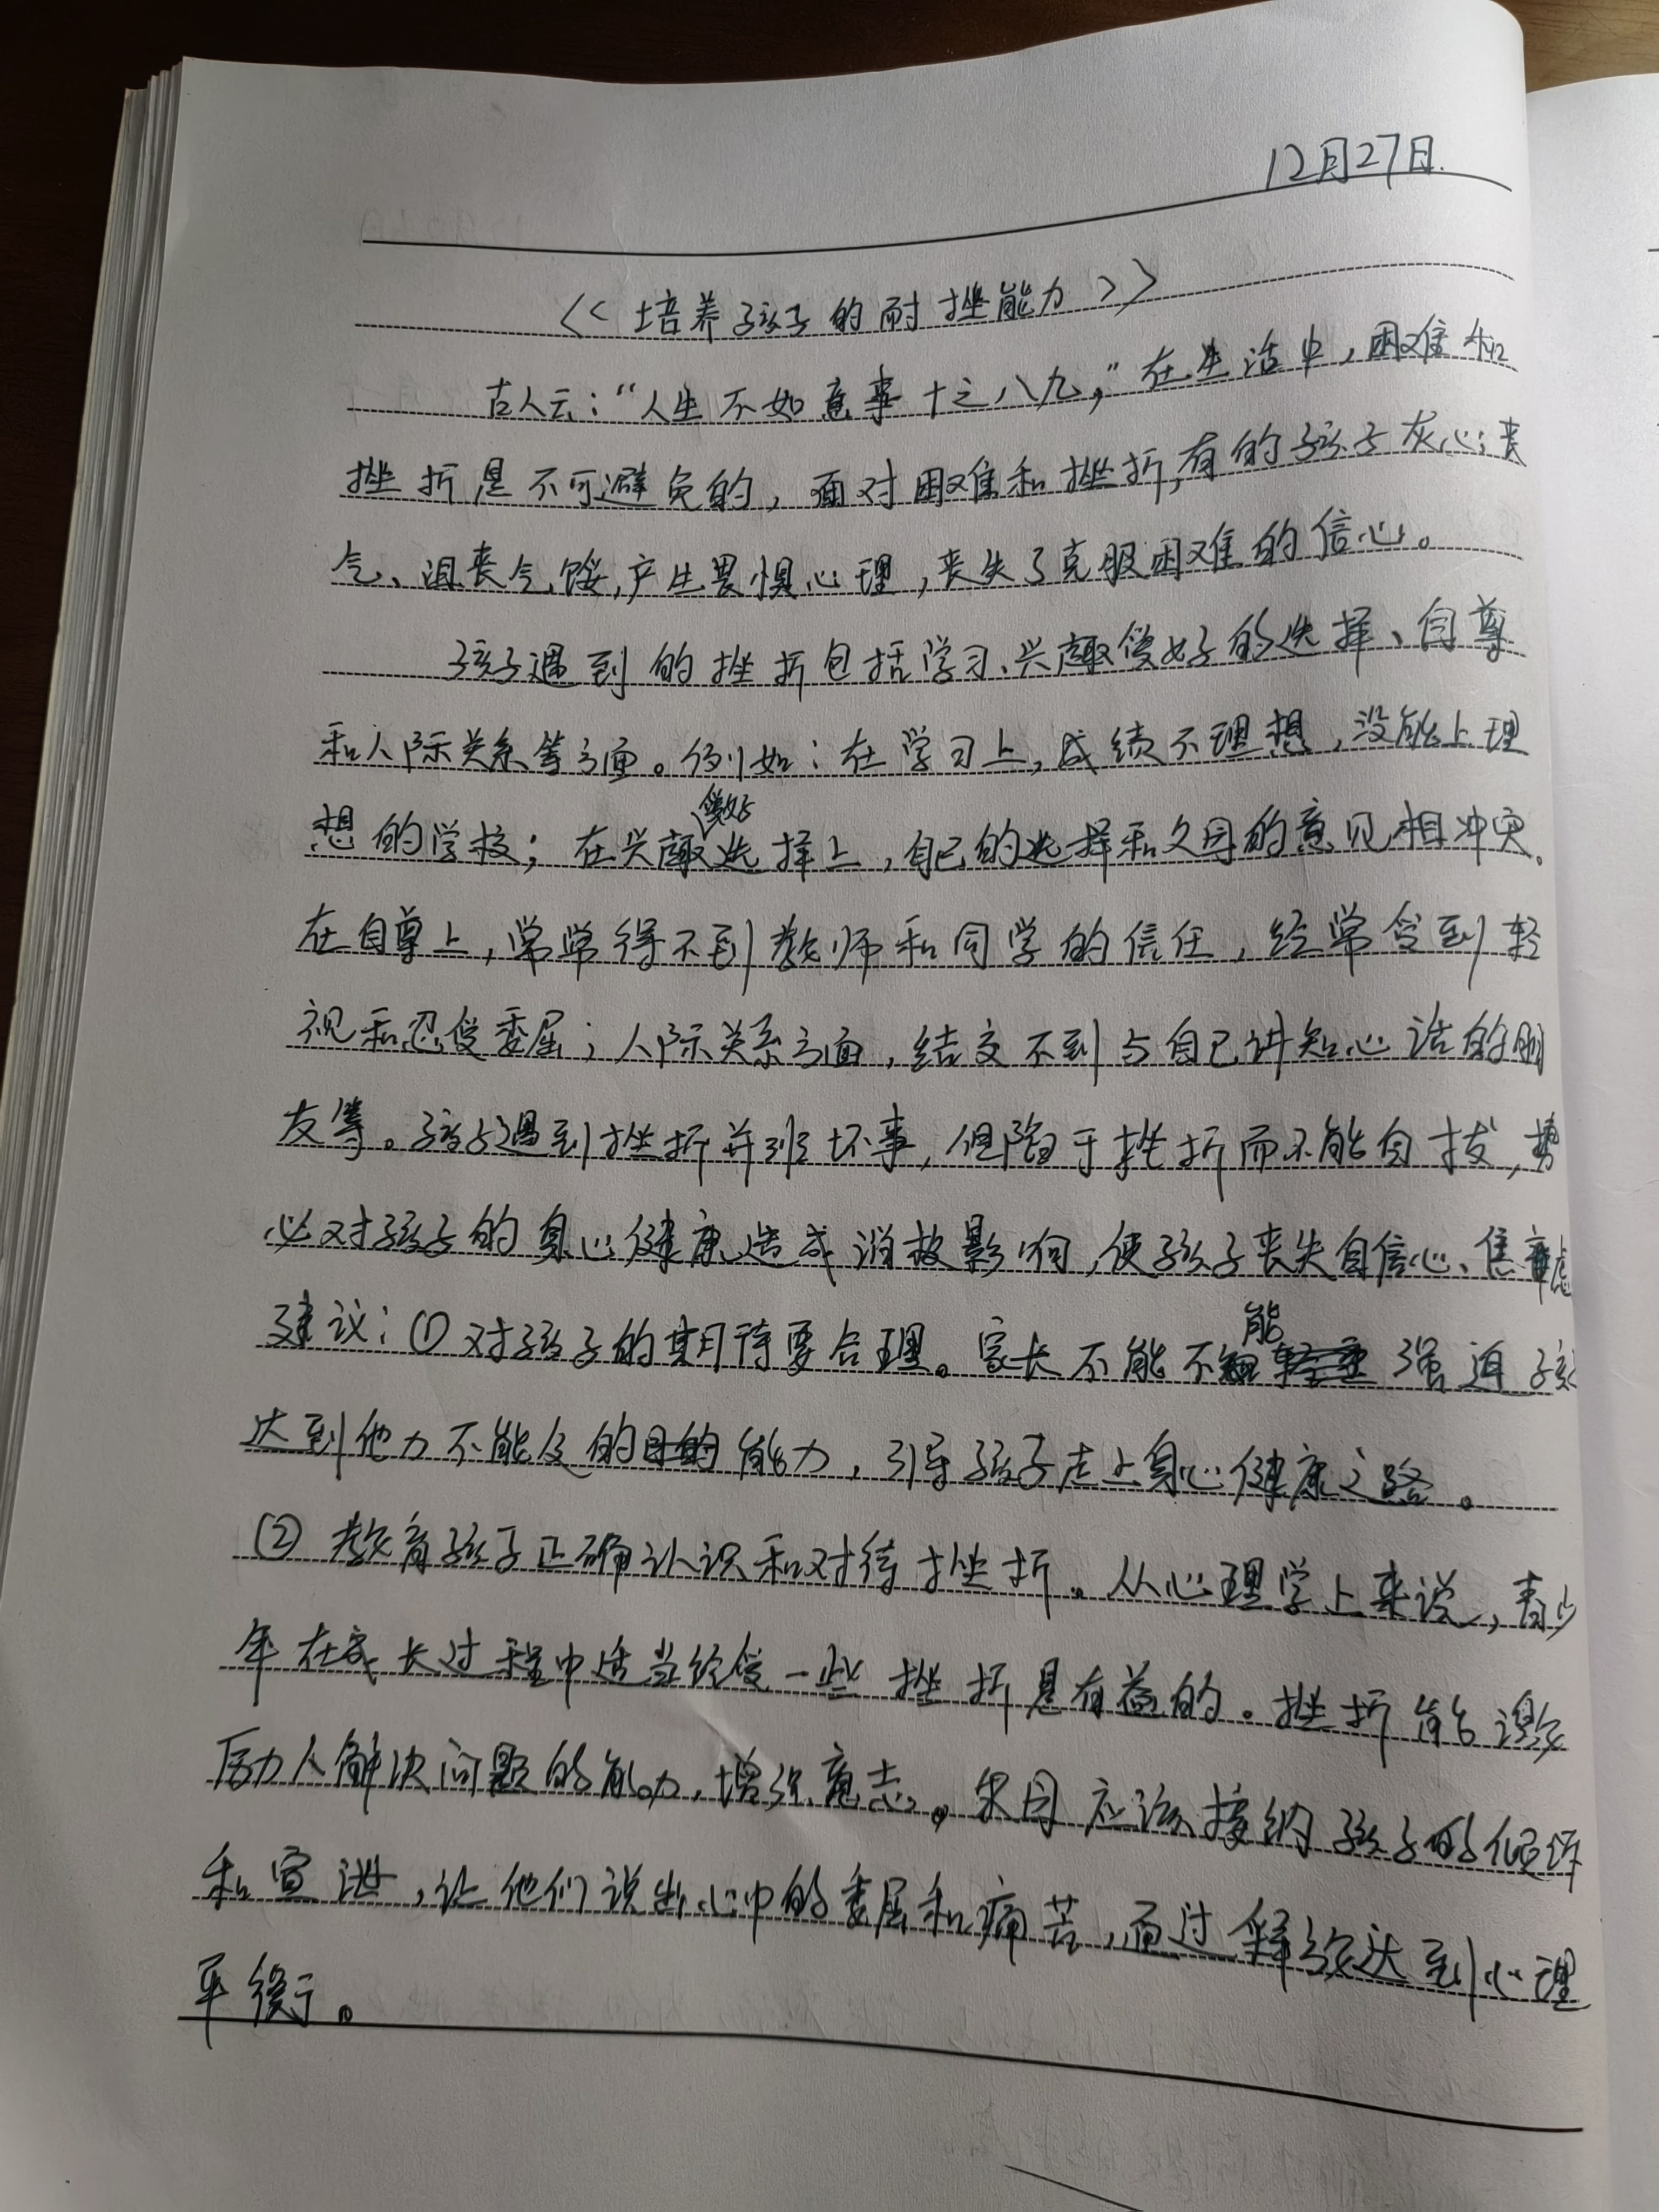 12月27日.
<<培养孩子的耐挫能力>>
古人云：“人生不如意事十之八九，”在生活中，困难和
挫折是不可避免的，面对困难和挫折，有的孩子灰心丧
气、沮丧气馁，产生畏惧心理，丧失了克服困难的信心。
孩子遇到的挫折包括学习、兴趣爱好的选择、自尊
和人际关系等方面。例如：在学习上，成绩不理想，没能上理
想的学校；在兴趣爱好选择上，自己的选择和父母的意见相冲突。
在自尊上，常常得不到教师和同学的信任，经常受到轻
视和忍受委屈；人际关系方面，结交不到与自己讲知心话的朋
友等。孩子遇到挫折并非坏事，但陷于挫折而不能自拔，势
必对孩子的身心健康造成消极影响，使孩子丧失自信心、焦虑
建议：①对孩子的期待要合理。家长不能不能强迫孩
达到他力不能及的能力，引导孩子走上身心健康之路。
② 教育孩子正确认识和对待挫折。从心理学上来说，青少
年在成长过程中适当经受一些挫折是有益的。挫折能激
励人解决问题的能力，增强意志。父母应该接纳孩子的倾诉
和宣泄，让他们说出心中的委屈和痛苦，而过释放达到心理
平衡。